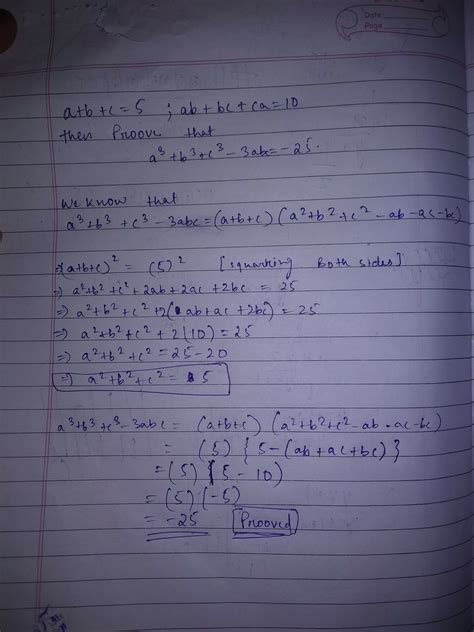 Date
Page
a+b+c=5 ; ab+bc+ca=10
then Proove that
a³+b³+c³-3abc=-25.
We know that
a³+b³+c³-3abc=(a+b+c)(a²+b²+c²-ab-ac-bc)
(a+b+c)² = (5)² [squarring Both sides]
⇒ a²+b²+c²+2ab+2ac+2bc = 25
⇒ a²+b²+c²+2(ab+ac+2bc)=25
⇒ a²+b²+c²+2(10)=25
⇒ a²+b²+c²=25-20
⇒ a²+b²+c²=5
a³+b³+c³-3abc=(a+b+c)(a²+b²+c²-ab-ac-bc)
= (5) {5-(ab+ac+bc)}
=(5) (5-10)
=(5) (-5)
= -25 Prooved